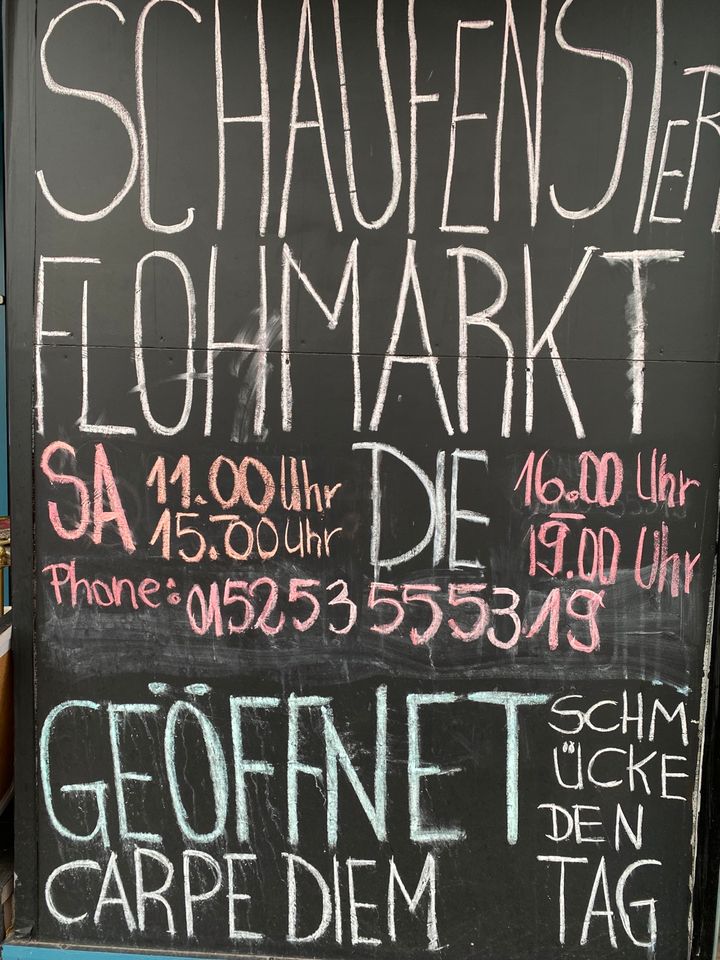 SCHAUFENSTER
FLOHMARKT
SA 11.00 Uhr DIE 16.00 Uhr
15.00 Uhr 19.00 Uhr
Phone: 0152 53 555319
GEÖFFNET SCHM
ÜCKE
DEN
CARPE DIEM TAG